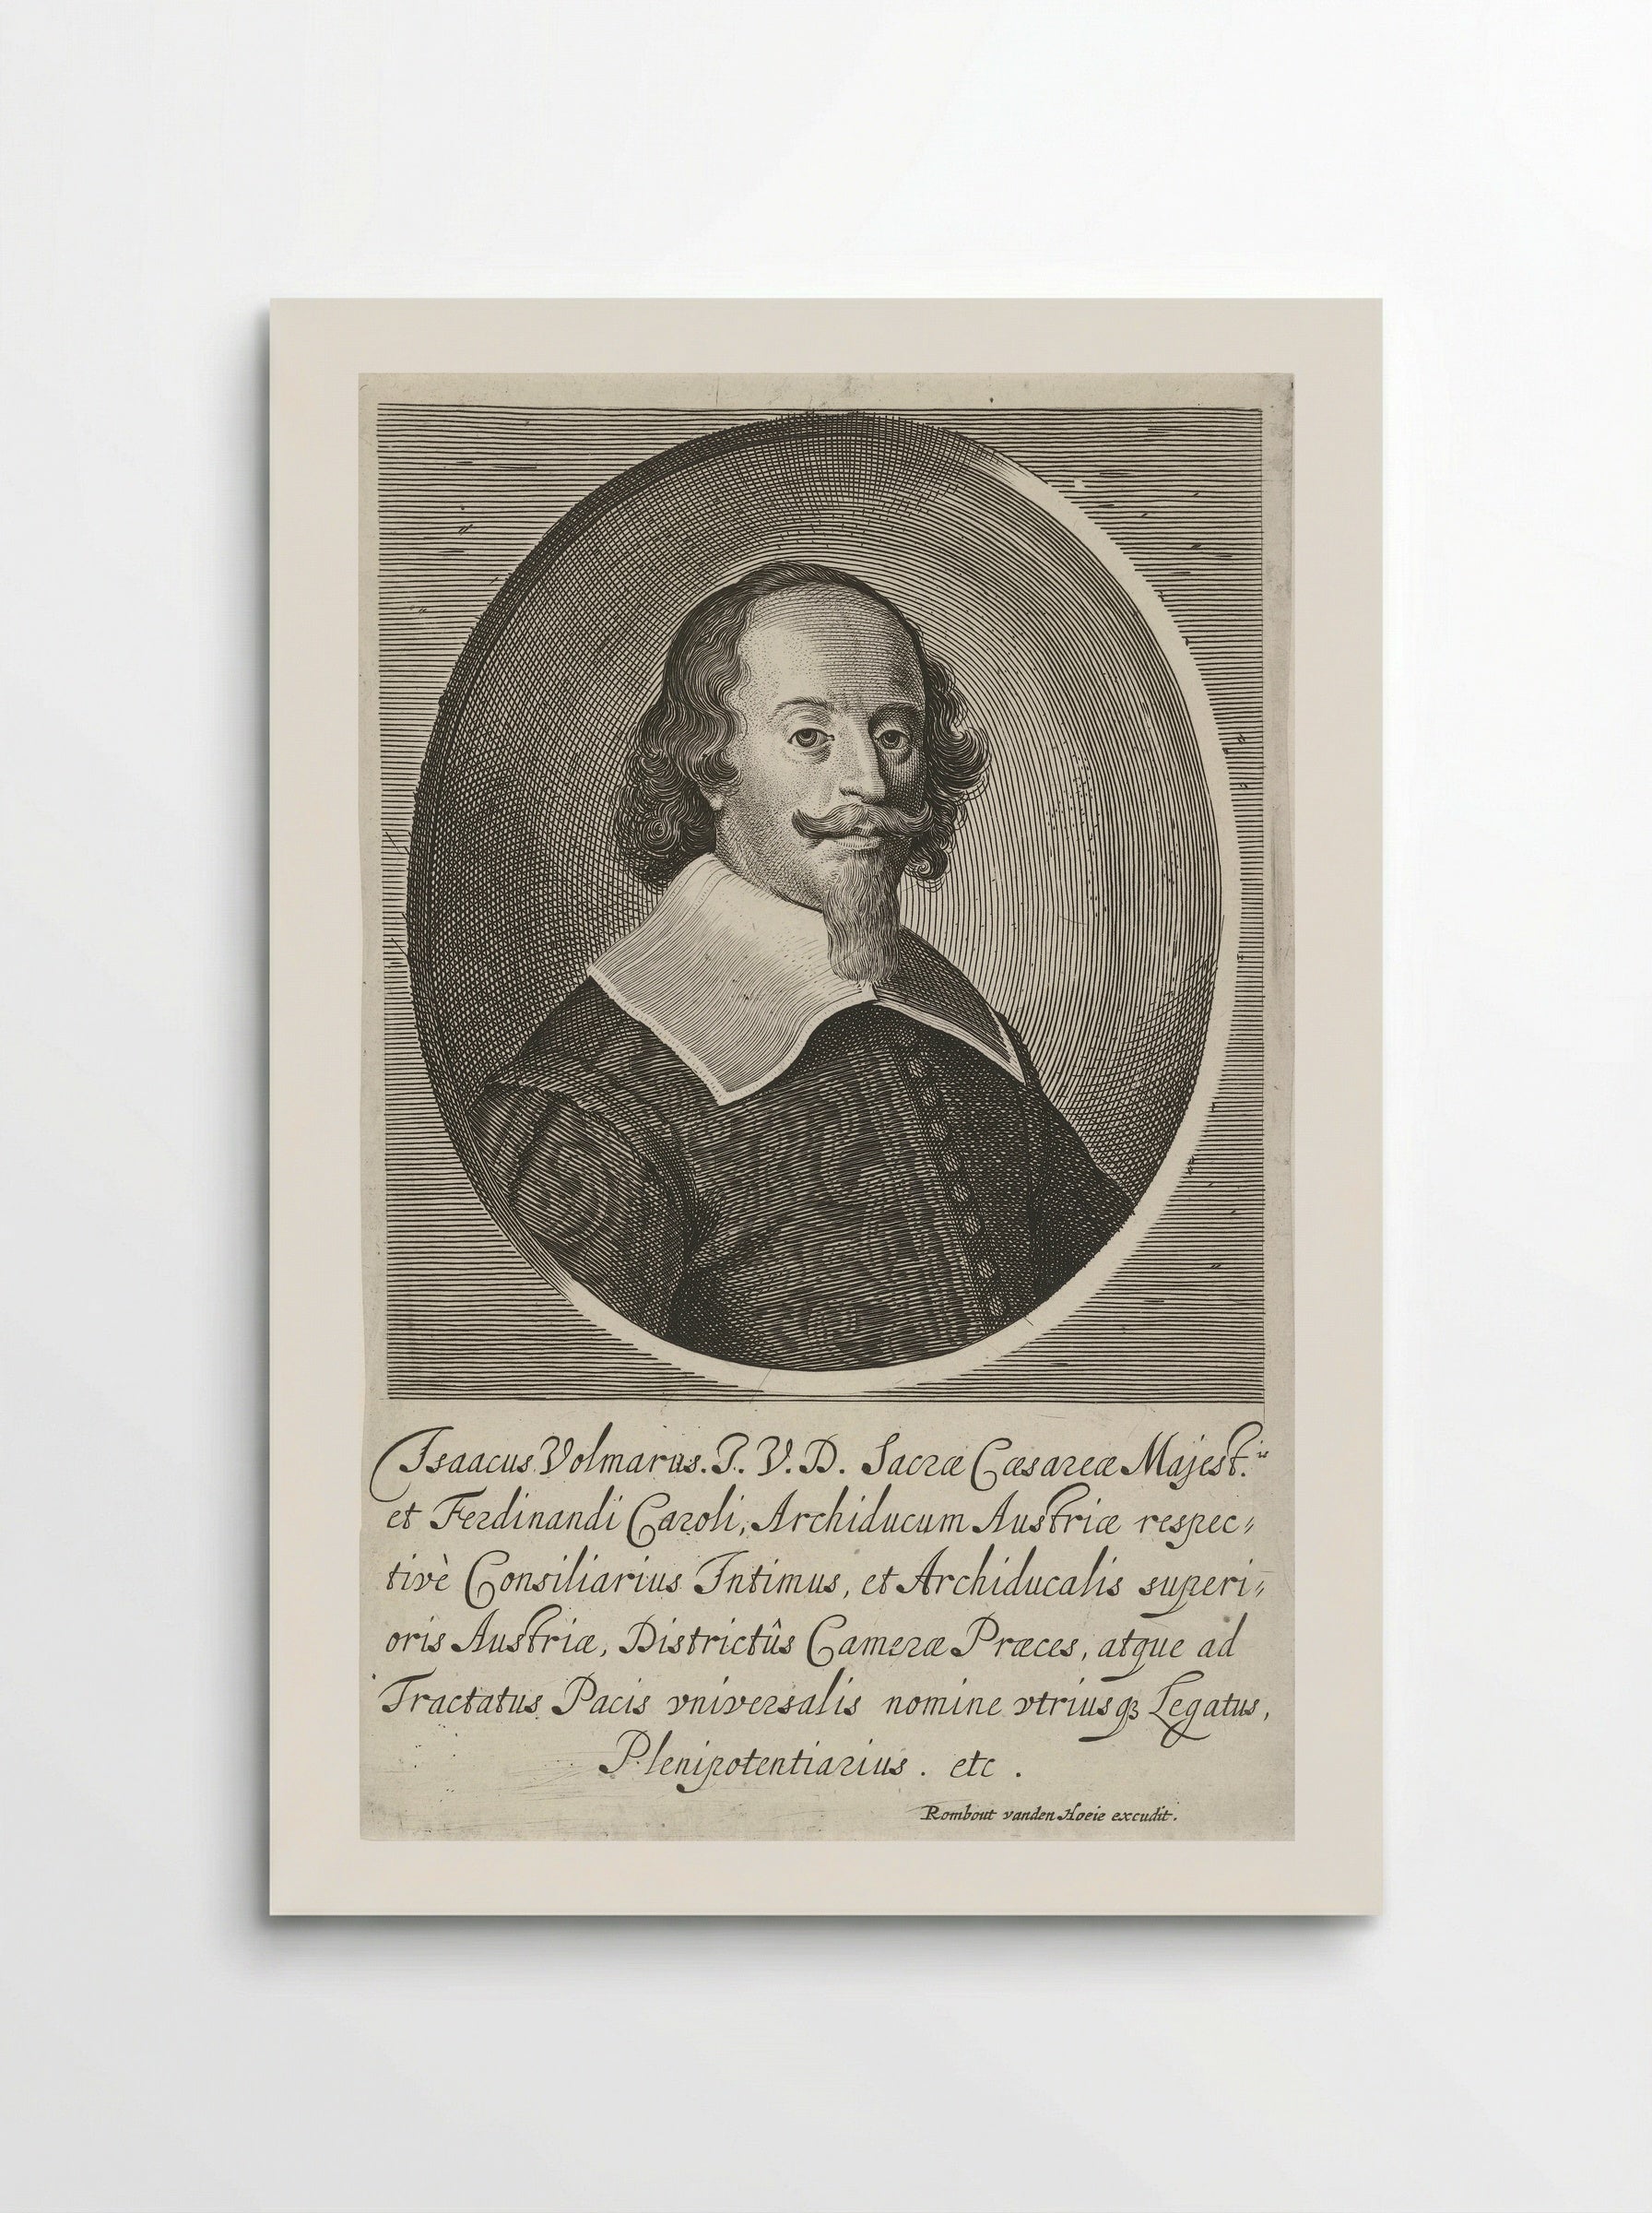 Isaacus Volmarus. I. V. D. Sacræ Cæsareæ Majest.is
et Ferdinandi Caroli, Archiducum Austriæ respec⸗
tivè Consiliarius Intimus, et Archiducalis superi⸗
oris Austriæ, Districtûs Cameræ Præces, atque ad
Tractatus Pacis vniversalis nomine vtriusqꝫ Legatus,
Plenipotentiarius. etc.
Rombout vanden Hoeie excudit.